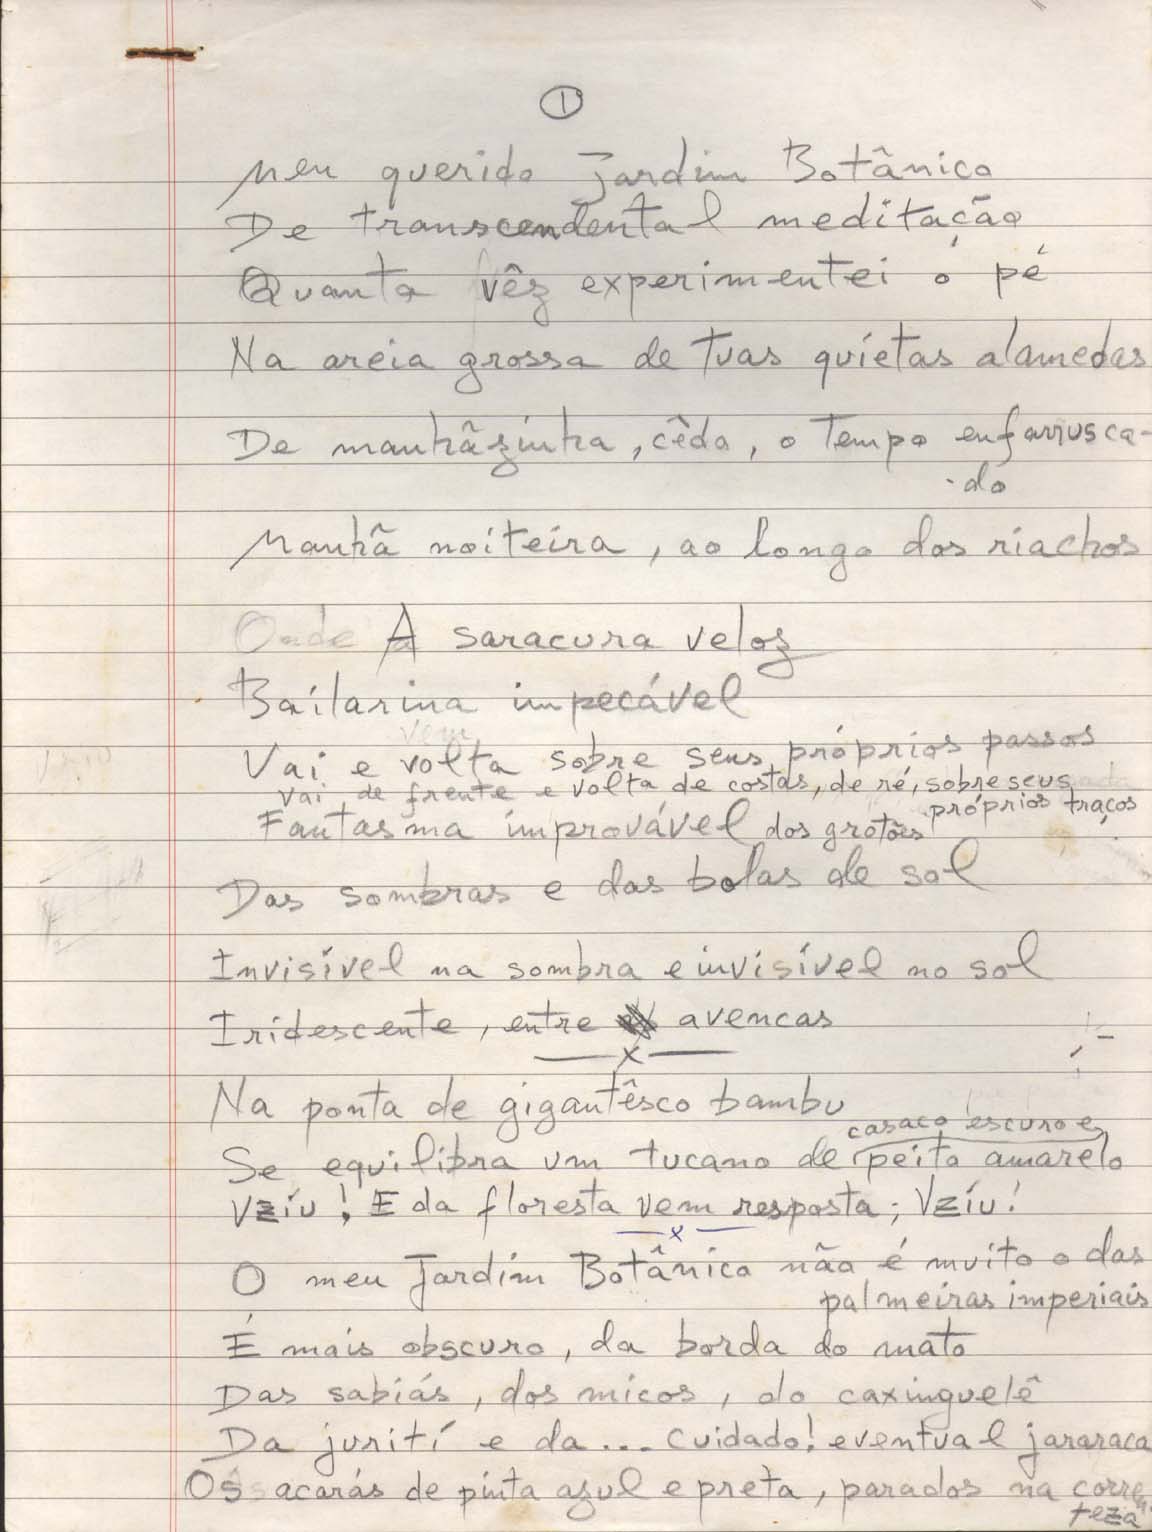 1
Meu querido Jardim Botânico
De transcendental meditação
Quanta vêz experimentei o pé
Na areia grossa de tuas quietas alamedas
De manhãzinha, cêdo, o tempo enfarrusca-
-do
Manhã noiteira, ao longo dos riachos
Onde A saracura veloz
Bailarina impecável
vem
Vai e volta sobre seus próprios passos
vai de frente e volta de costas, de ré, sobre seus
próprios traços
Fantasma improvável dos grotões
Das sombras e das bolas de sol
Invisível na sombra e invisível no sol
Iridescente, entre avencas
—x—
Na ponta de gigantêsco bambu
casaco escuro e
Se equilibra um tucano de peito amarelo
Vzíu! E da floresta vem resposta; Vzíu!
—x—
O meu Jardim Botânico não é muito o das
palmeiras imperiais
É mais obscuro, da borda do mato
Das sabiás, dos micos, do caxinguelê
Da jurití e da... cuidado! eventual jararaca
Os acarás de pinta azul e preta, parados na corren
teza